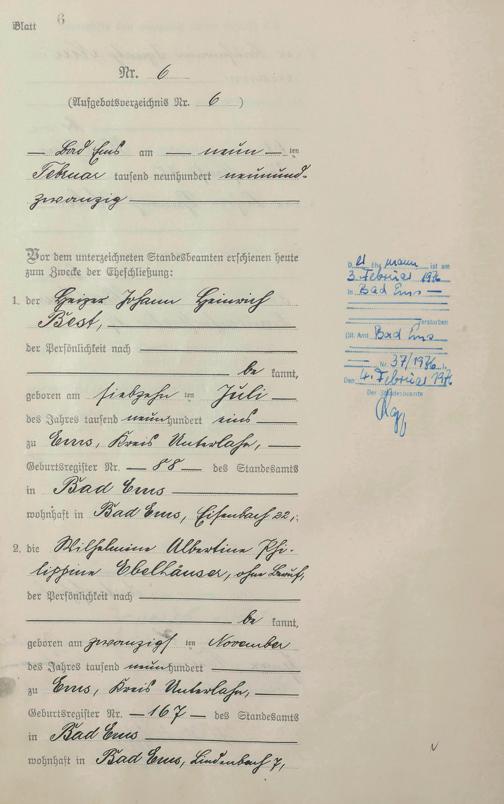 Blatt 6
Nr. 6
(Aufgebotsverzeichnis Nr. 6)
Bad Ems am neun ten
Februar tausend neunhundert neunund-
zwanzig
Vor dem unterzeichneten Standesbeamten erschienen heute
zum Zwecke der Eheschließung:
1. der Heizer Johann Heinrich
Best,
der Persönlichkeit nach
be kannt,
geboren am siebzehn ten Juli
des Jahres tausend neunhundert eins
zu Ems, Kreis Unterlahn,
Geburtsregister Nr. 88 des Standesamts
in Bad Ems
wohnhaft in Bad Ems, Eisenbach 22,
2. die Wilhelmine Albertine Phi-
lippine Ebelhäuser, ohne Beruf,
der Persönlichkeit nach
be kannt,
geboren am zwanzigs ten November
des Jahres tausend neunhundert
zu Ems, Kreis Unterlahn,
Geburtsregister Nr. 167 des Standesamts
in Bad Ems
wohnhaft in Bad Ems, Lindenbach 7,
D er Ehemann ist am
3. Februar 1976
in Bad Ems
verstorben
(St. Amt Bad Ems
Nr. 37/1976).
Den 4. Februar 197
Der Standesbeamte